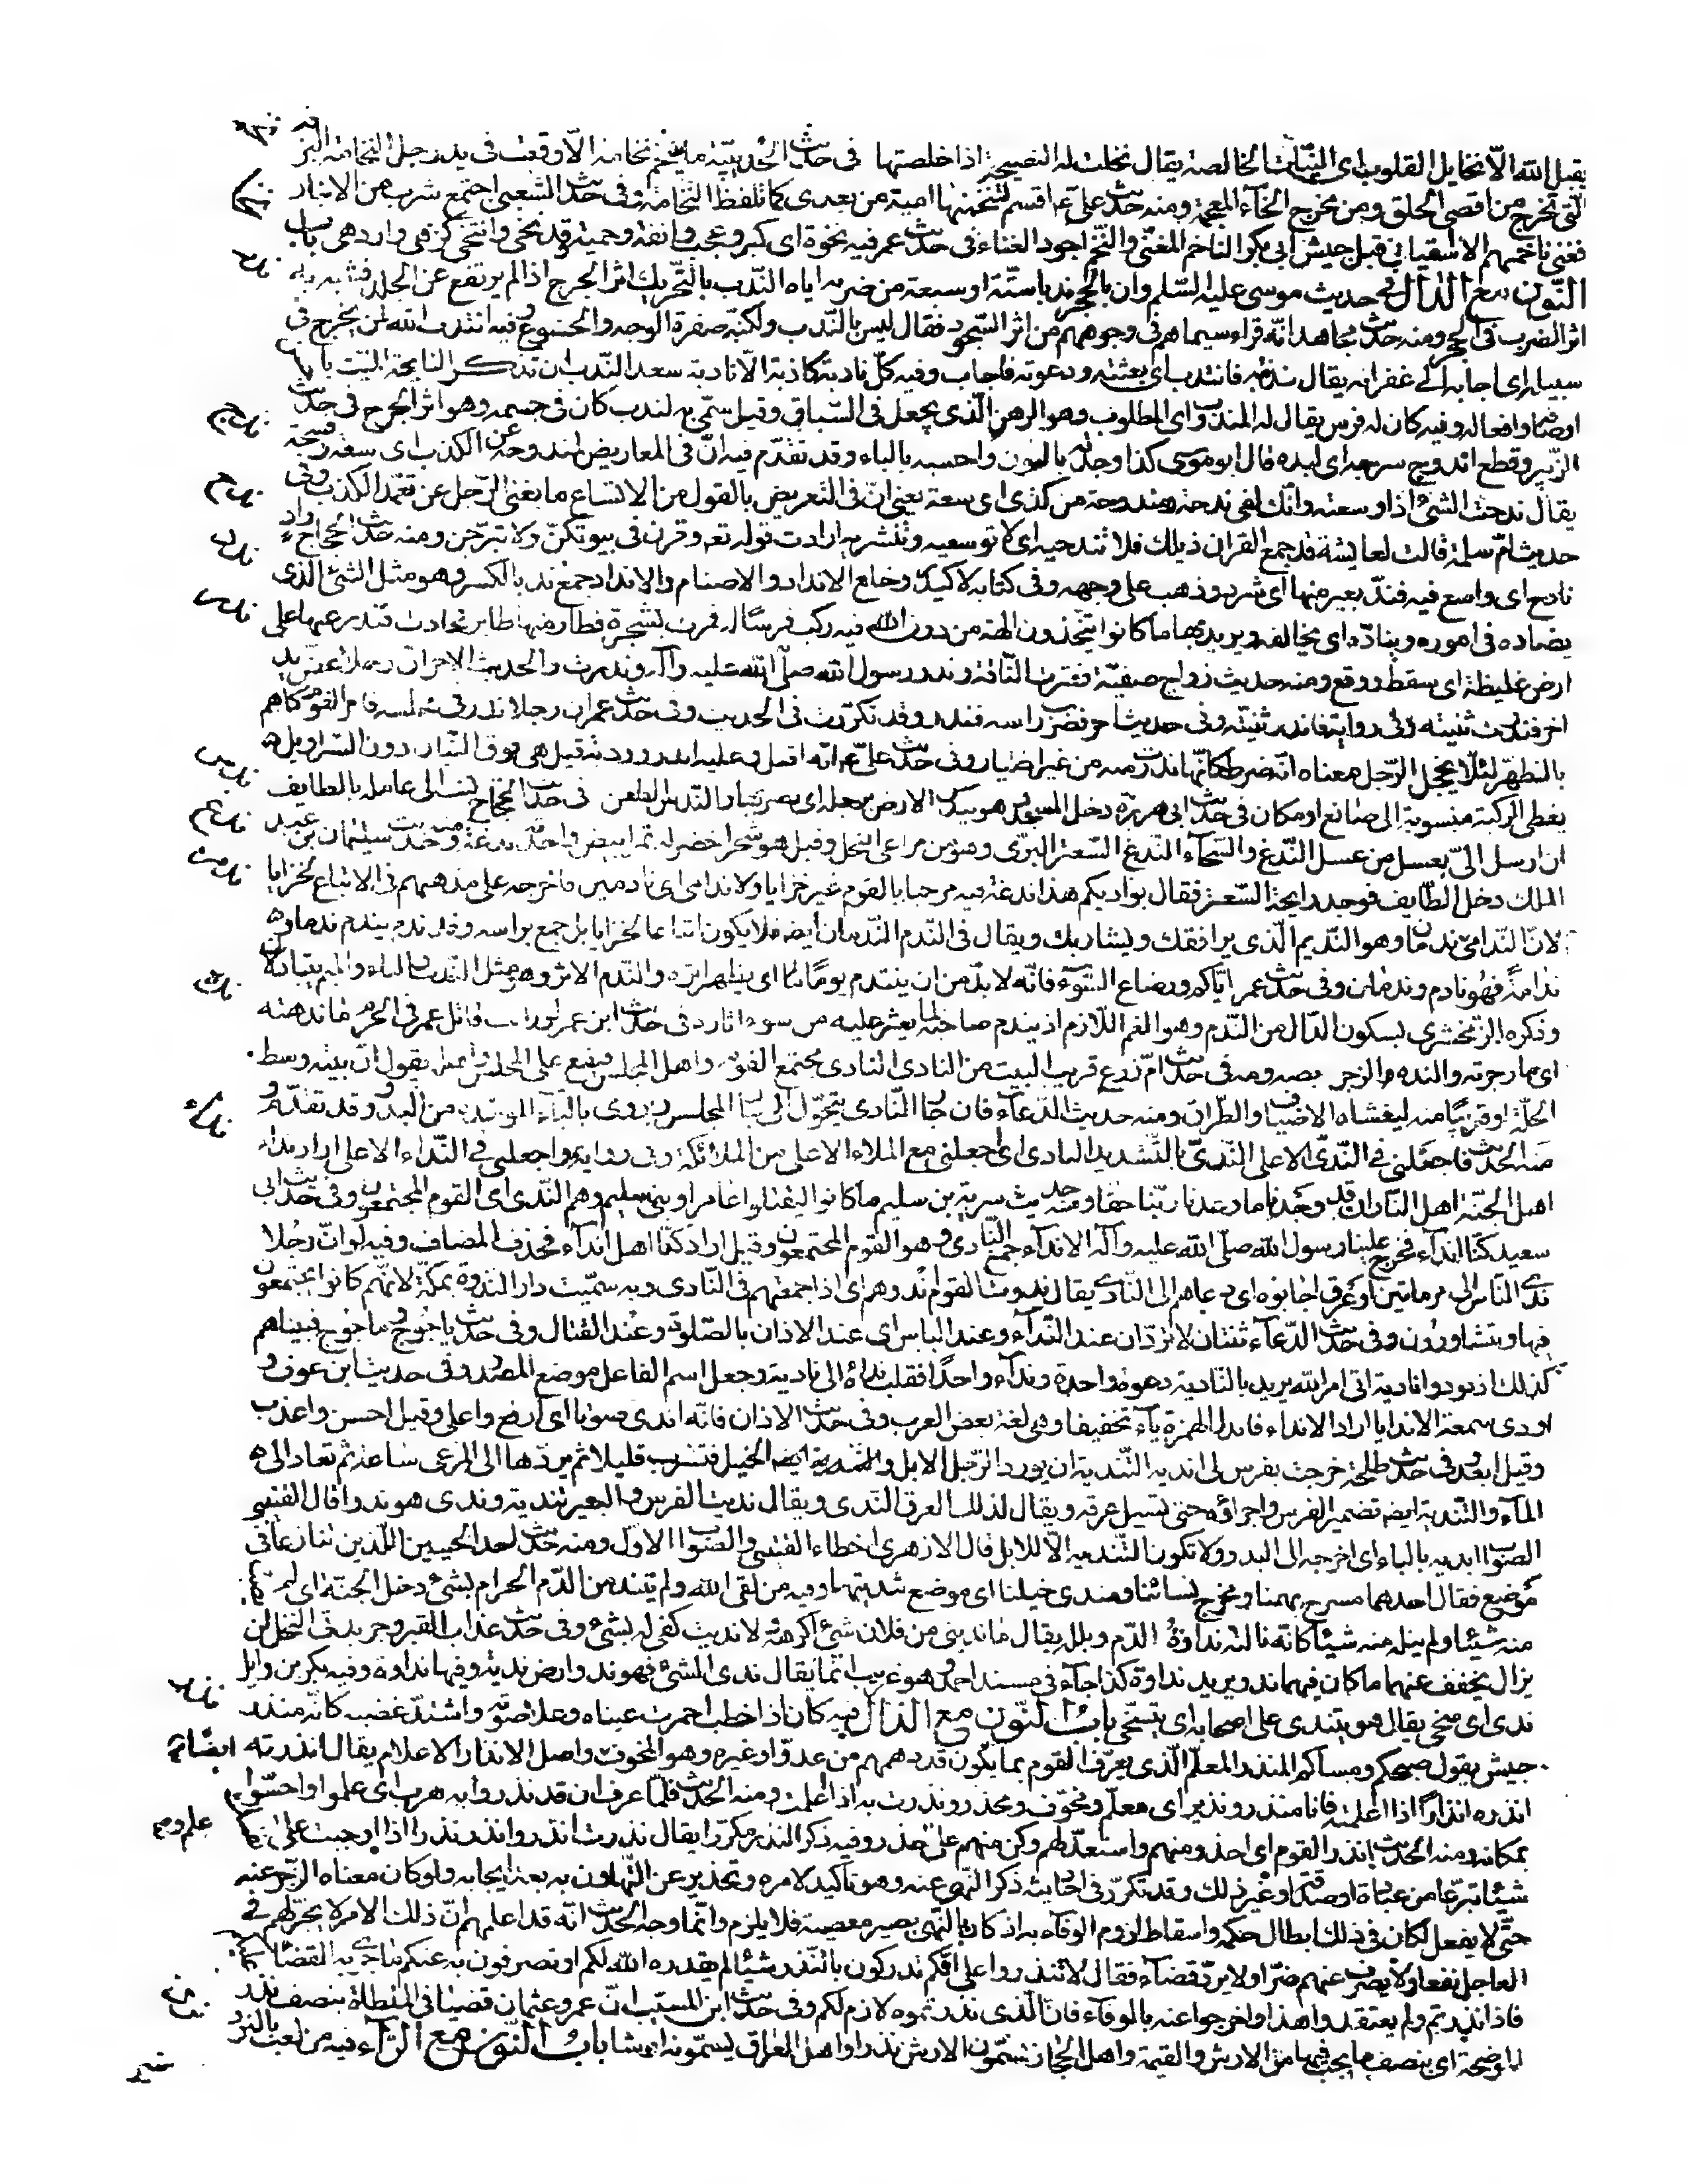 يقبل الله الّا نخايل القلوب اى النيّات الخالصة يقال نخلت له النصيحة اذا خلصتها فى حديث الحديبيّة ما يتنخم نخامة الّا وقعت فى يد رجل النخامة البز
التى تخرج من اقصى الحلق ومن مخرج الخآء المعجمة ومنه حديث علىّ ع اقسم لتنخمنها امية من بعدى كما تلفظ النخامة وفى حديث الشعبى اجتمع شرب من الانبار
فغنى ناخمهم الا سقيانى قبل جيش ابى بكر الناخم المغنّى والنّخم اجود الغناء فى حديث عمر فيه نخوة اى كبر وعجب وانفة وحمية وقد نخى وانتخى كزهى وازدهى باب
النّون مع الدّال فى حديث موسى عليه السّلم وان بالحجر ندبا ستّة او سبعة من ضربه اياه النّدب بالتّحريك اثر الجرح اذا لم يرتفع عن الجلد فشبه به
اثر الضرب فى الحجر ومنه حديث مجاهد انّه قراء سيماهم فى وجوههم من اثر السّجود فقال ليس بالنّدب ولكنّه صفرة الوجه والخشوع وفيه انتدب الله لمن يخرج فى
سبيله اى اجابه الى غفرانه يقال ندبته فانتدب اى بعثته ودعوته فاجاب وفيه كلّ نادبة كاذبة الّا نادبة سعد النّدب ان تذكر النايحة الميّت با
اوصافه وافعاله وفيه كان له فرس يقال له المندوب اى المطلوب وهو الرهن الّذى يجعل فى السّباق وقيل سمّى به لندب كان فى جسمه وهو اثر الجرح فى حديث
الزّبير وقطع اندوج سرجه اى لبده قال ابو موسى كذا وجدته بالنون واحسبه بالباء وقد تقدّم فيه انّ فى المعاريض لمندوحة عن الكذب اى سعة وفسحة
يقال ندحت الشئ اذا وسعته وانّك لفى ندحة ومندوحة من كذى اى سعة يعنى انّ فى التعريض بالقول من الاتساع ما يغنى الرّجل عن تعمّد الكذب وفى
حديث امّ سلمة قالت لعايشة قد جمع القران ذيلك فلا تندحيه اى لا توسعيه وتنشريه ارادت قوله تعه وقرن فى بيوتكنّ ولا تبرّجن ومنه حديث الحجاج واد
نادح اى واسع فيه فندّ بعير منها اى شرد وذهب على وجهه وفى كتابه لاكيدر وخلع الانداد والاصنام والانداد جمع ندّ بالكسر وهو مثل الشئ الّذى
يضاده فى اموره وينادّه اى يخالفه ويريد بها ما كانوا يتّخذون الهة من دون الله فيه ركب فرسًا له فمرت بشجرة فطار منها طاير فحادت فندر عنها على
ارض غليظة اى سقط ووقع ومنه حديث زواج صفيّة فعثرت النّاقة وندر رسول الله صلّى الله عليه وآله وندرت والحديث الاخر انّ رجلا عضّ يد
اخر فندرت ثنيته وفى رواية فاندر ثنيّته وفى حديث اخر فضرب راسه فندر وقد تكرّرت فى الحديث وفى حديث عمر ان رجلا ندر فى مجلسه فامر القوم كلهم
بالتطهّر لئلّا يخجل الرّجل معناه انّه ضرط كانّها ندرت منه من غير اختيار وفى حديث علىّ ع انّه اقبل وعليه اندروردية قيل هى فوق التبّان دون السّراويل
يغطى الركبة منسوبة الى صانع او مكان فى حديث ابى هريرة دخل المسجد وهو يندس الارض برجله اى يضربها النّدس الطعن فى حديث الحجّاج كتب الى عامله بالطايف
ان ارسل الىّ بعسل من عسل النّدغ والسّحآء النّدغ السّعتر البرّى وهو من مراعى النحل وقيل هو شجر اخضر له ثمر ابيض واحدته ندغة ومنه حديث سليمان بن عبد
الملك دخل الطّايف فوجد رايحة السّعتر فقال بواديكم هذا ندغة فيه مرحبا بالقوم غير خزايا ولا ندامى اى نادمين فاخرجه على مذهبهم فى الاتباع لخزايا
لانّ النّدامى جمع ندمان وهو النّديم الّذى يرافقك ويشاربك ويقال فى النّدم النّدمان ايضه فلا يكون اتباعا لخزايا بل جمع براسه وقد ندم يندم ندما و
ندامة فهو نادم وندمان وفى حديث عمر ايّاكم ورضاع السّوء فانّه لا بدّ من ان ينتدم يومًا ما اى يظهر اثره والنّدم الاثر وهو مثل النّدب والباء والميم يتبادلان
وذكره الزّمخشرى بسكون الدّال من النّدم وهو الغم اللّازم اذ يندم صاحبه لما يعثر عليه من سوء اثاره فى حديث ابن عمر لو رايت قاتل عمر فى الحرم ما ندهته
اى ما زجرته والنده الزجر بصه ومه فى حديث امّ زرع قريب البيت من النادى النادى مجتمع القوم واهل المجلس فيقع على المجلس واهله يقول انّ بيته وسط
الحلّة او قريبًا منه ليغشاه الاضياف والطّراق ومنه حديث الدّعآء فان جار النّادى يتحوّل اى جار المجلس ويروى بالباء الموحّدة من البدو وقد تقدّم و
منه الحديث فاجعلنى فى النّدىّ الاعلى النّدىّ بالتّشديد النادى اى اجعلنى مع الملاء الاعلى من الملائكة وفى رواية واجعلنى فى النّداء الاعلى اراد نداء
اهل الجنّة اهل النّار ان قد وجدنا ما وعدنا ربّنا حقا ومنه حديث سرية بن سليم ما كانوا ليقتلوا عامرا وبنى سليم وهم النّدى اى القوم المجتمعون وفى حديث ابى
سعيد كنّا انداء فخرج علينا رسول الله صلّى الله عليه وآله الاندآء جمع النّادى وهو القوم المجتمعون وقيل اراد كنّا اهل اندآء فحذف المضاف وفيه لو انّ رجلا
ندى النّاس الى مرماتين او عرق اجابوه اى دعاهم الى النّادى يقال ندوت القوم اندوهم اى اذا جمعتهم فى النّادى وبه سمّيت دار الندوة بمكّة لانّهم كانوا يجتمعون
فيها ويتشاورون وفى حديث الدّعآء ثنتان لا تردّان عند النّدآء وعند الباس اى عند الاذان بالصّلوة وعند القتال وفى حديث ياجوج وماجوج فبيناهم
كذلك اذ نودوا نادية اتى امر الله يريد بالنّادية دعوة واحدة وندآء واحدًا فقلب نداءة الى نادية وجعل اسم الفاعل موضع المصدر وفى حديث ابن عوف و
اودى سمعه الا ندايا اراد الا نداء فابدل الهمزة يآء تخفيفا وهى لغة بعض العرب وفى حديث الاذان فانّه اندى صوتا اى ارفع واعلى وقيل احسن واعذب
وقيل ابعد وفى حديث طلحة خرجت بفرس لى اندّيه التّندية ان يورد الرّجل الابل والخيل فتشرب قليلا ثم يردّها الى المرعى ساعة ثم تعاد الى
المآء والتّندية ايضه تضمير الفرس واجراؤه حتى يسيل عرقه ويقال لذلك العرق النّدى ويقال نديت الفرس والبعير تندية وندى هو ندوا قال القتيبى
الصّواب ابديه بالباء اى اخرجه الى البدو ولا تكون التّندية الّا للابل قال الازهرى اخطاء القتيبى والصّواب الاوّل ومنه حديث احد الحيين اللّذين تنازعا فى
موضع فقال احدهما مسرح بهمنا ومخرج نسائنا ومندى خيلنا اى موضع تنديتها وفيه من لقى الله ولم يتندّ من الدّم الحرام بشئ دخل الجنّة اى لم
منه شيئا ولم ينله منه شيئا كانّه نالته نداوة الدّم وبلله يقال ما نديت من فلان شئ اكرهه ولا نديت كفى له بشئ وفى حديث عذاب القبر وجريدتى النّخل لن
يزال يخفف عنهما ما كان فيهما ندو يريد نداوة كذا جآء فى مسند احمد وهو غريب انّما يقال ندى الشئ فهو ند وارض ندية وفيها نداوة وفيه بكر بن وايل
ندى اى سخى يقال هو يتندى على اصحابه اى يتسخّى باب النّون مع الذال فيه كان اذا خطب احمرت عيناه وعلا صوته واشتدّ غضبه كانّه منذر
جيش يقول صبحكم ومساكم المنذر المعلم الّذى يعرّف القوم بما يكون قد دهمهم من عدوّ او غيره وهو المخوّف واصل الانذار الاعلام يقال انذرته
انذره انذارا اذا اعلمته فانا منذر ونذير اى معلم ومخوّف ومحذر ونذرت به اذا علمت ومنه الحديث فلمّا عرف ان قد نذروا به هرب اى علموا واحسّوا
بمكانه ومنه الحديث انذر القوم اى احذر منهم واستعدّ لهم وكن منهم على حذر وفيه ذكر النذر مكرّرا يقال نذرت انذر وانذر نذرا اذا اوجبت على نفسك
شيئا تبرّعا من عبادة او صدقة او غير ذلك وقد تكرّر فى احاديثه ذكر النّهى عنه وهو تاكيد لامره وتحذير عن التّهاون به بعد ايجابه ولو كان معناه الزّجر عنه
حتّى لا يفعل لكان فى ذلك ابطال حكمه واسقاط لزوم الوفآء به اذ كان بالنّهى يصير معصية فلا يلزم وانّما وجه الحديث انّه قد اعلمهم انّ ذلك الامر لا يجرّ لهم فى
العاجل نفعا ولا يصرف عنهم ضرّا ولا يردّ قضآء فقال لا تنذروا على انّكم تدركون بالنّذر شيئا لم يقدره الله لكم او تصرفون به عنكم ما جرى به القضآء عليكم
فاذا نذرتم ولم يعتقدوا هذا فاخرجوا عنه بالوفآء فانّ الّذى نذرتموه لازم لكم وفى حديث ابن المسيّب انّ عمر وعثمان قضيا فى الملطاة بنصف نذر
الموضحة اى بنصف ما يجب فيها من الارش والقيمة واهل الحجاز يسمّون الارش نذرا واهل العراق يسمّونه ارشا باب النّون مع الرآء فيه من لعب بالنرد